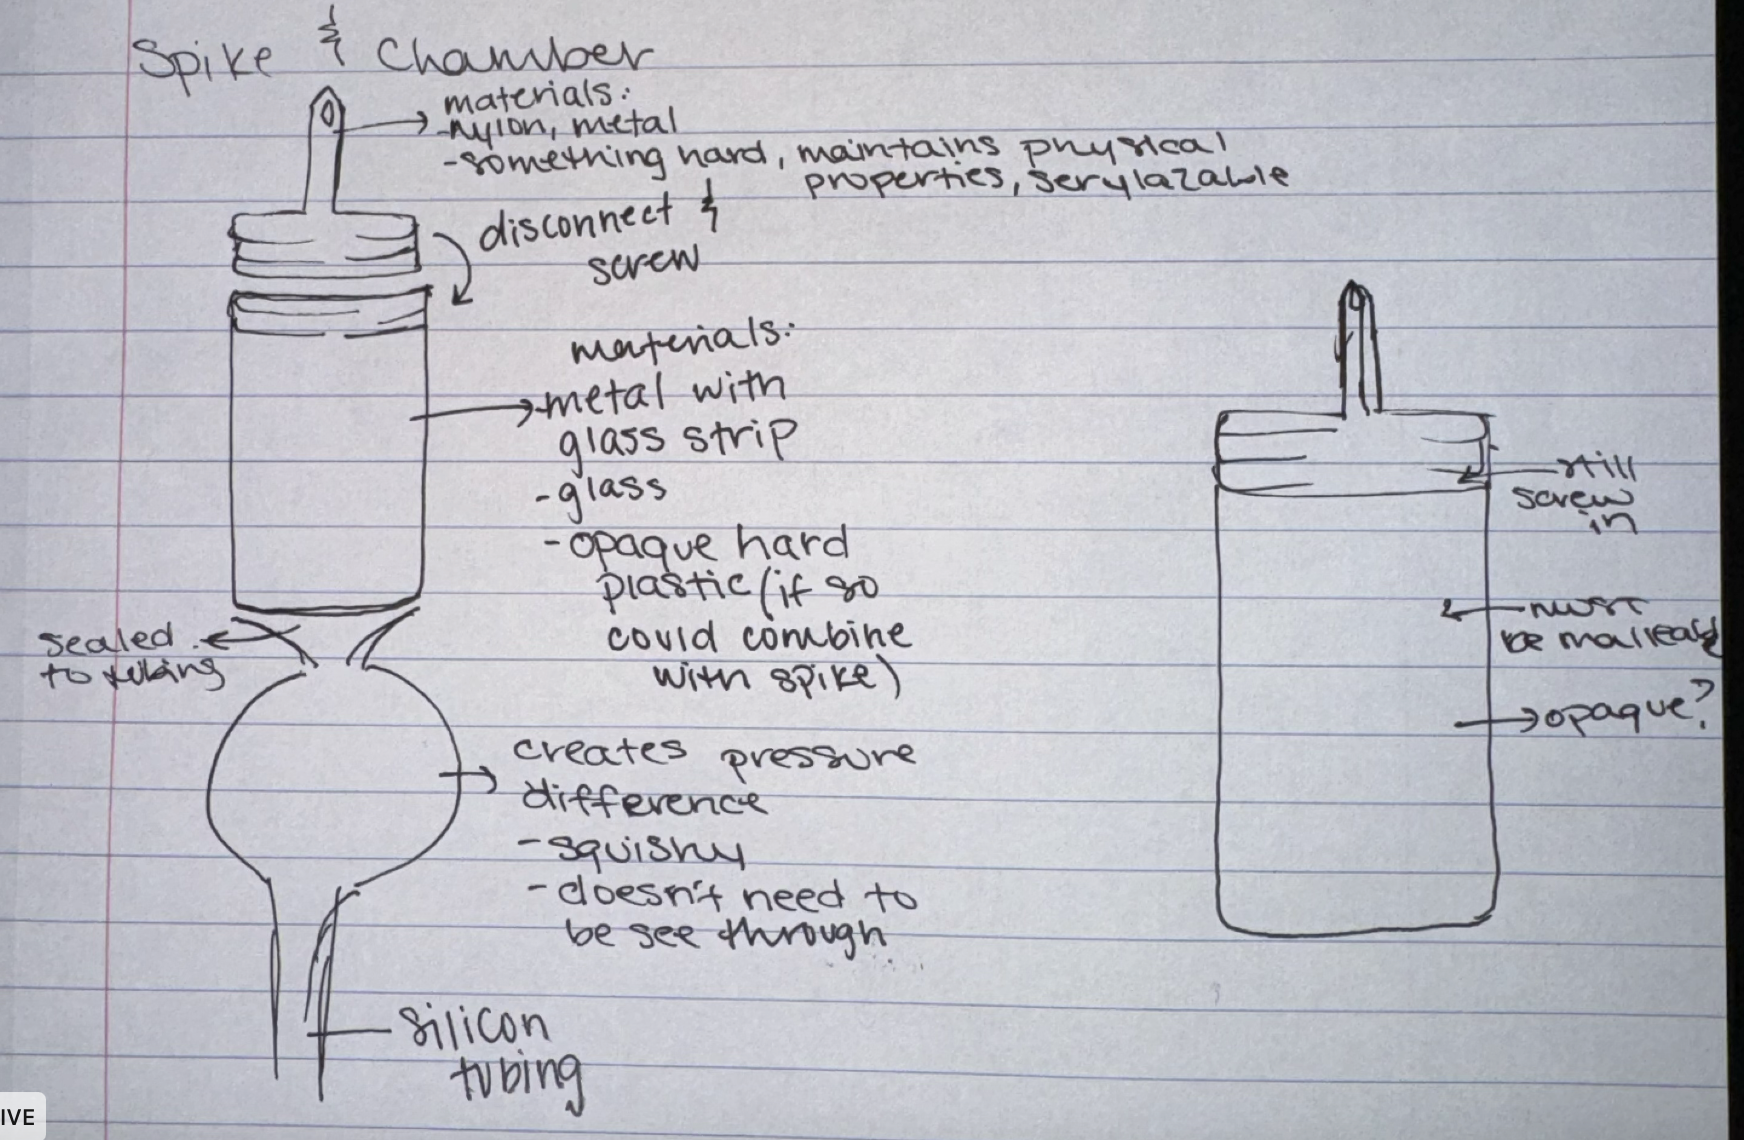 Spike & Chamber
materials:
-nylon, metal
-something hard, maintains physical
properties, serylazable
disconnect &
screw
materials:
-metal with
glass strip
-glass
-opaque hard
plastic (if so
could combine
with spike)
sealed
to tubing
creates pressure
difference
-squishy
-doesn't need to
be see through
silicon
tubing
still
screw
in
must
be malleable
opaque?
IVE